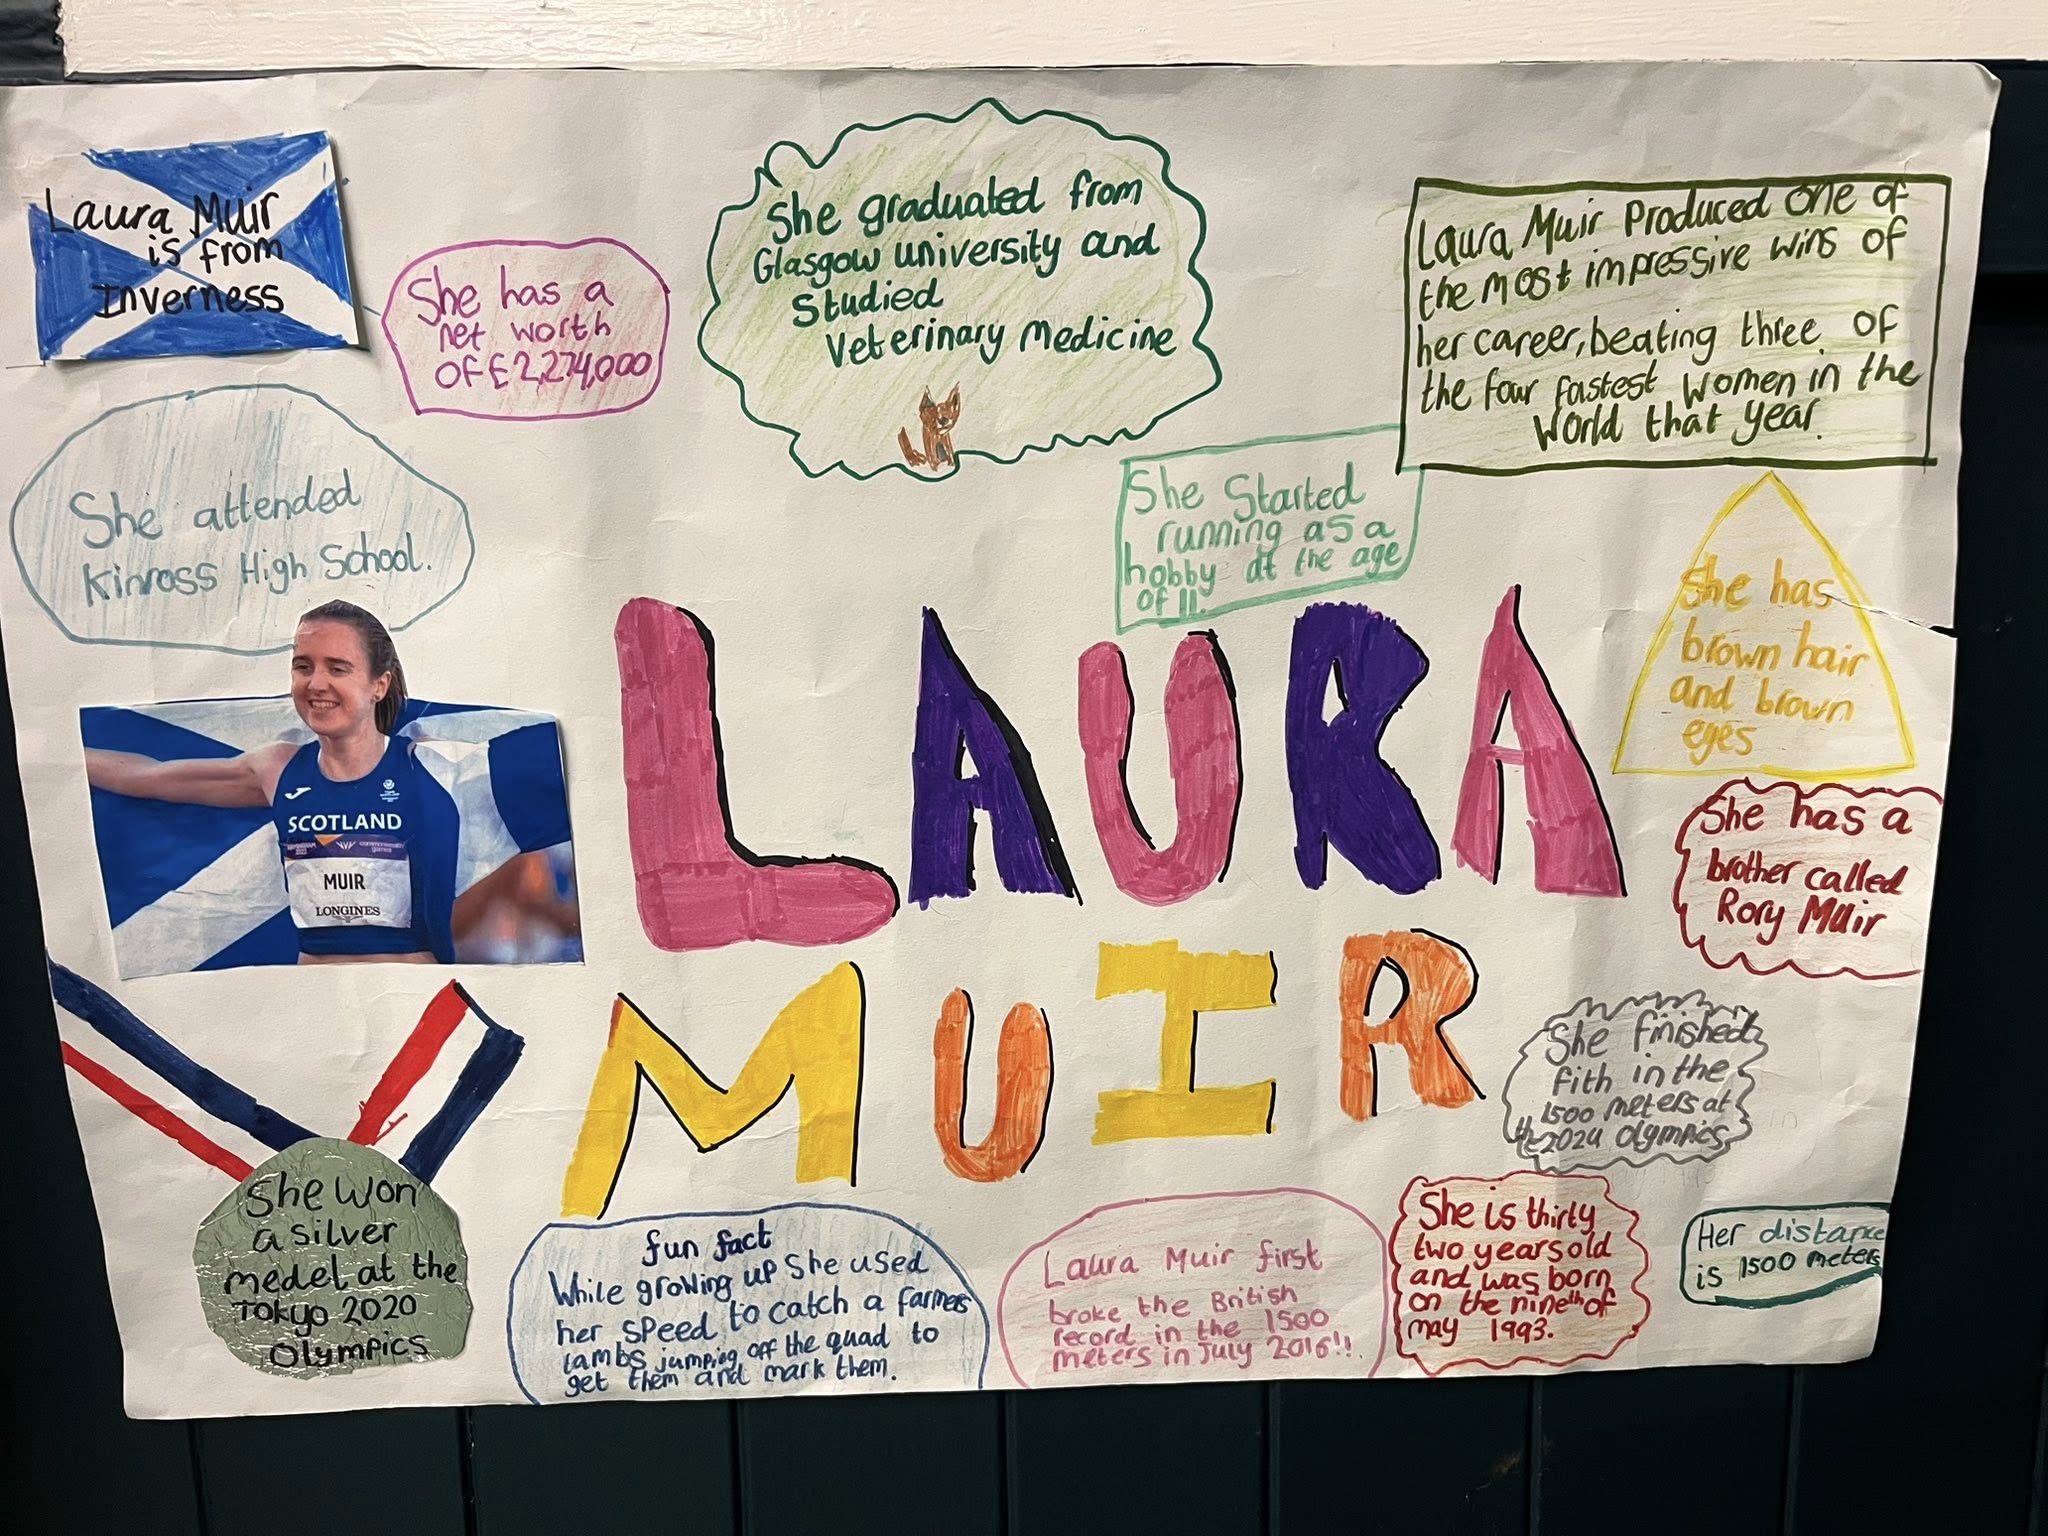 Laura Muir
is from
Inverness
She has a
net worth
of £2,274,000
She graduated from
Glasgow university and
Studied
Veterinary Medicine
Laura Muir Produced one of
the most impressive wins of
her career, beating three of
the four fastest women in the
World that year.
She attended
Kinross High School.
She Started
running as a
hobby at the age
of 11.
She has
brown hair
and brown
eges
SCOTLAND
MUIR
LONGINES
LAURA
MUIR
She has a
brother called
Rory Muir
She finished
fith in the
1500 meters at
the 2024 olympics
She won
a silver
medel at the
Tokyo 2020
Olympics
fun fact
While growing up She used
her speed to catch a farmers
lambs jumping off the quad to
get them and mark them.
Laura Muir first
broke the British
record in the 1500
meters in July 2016!!.
She is thirty
two years old
and was born
on the nineth of
may 1993.
Her distance
is 1500 meters